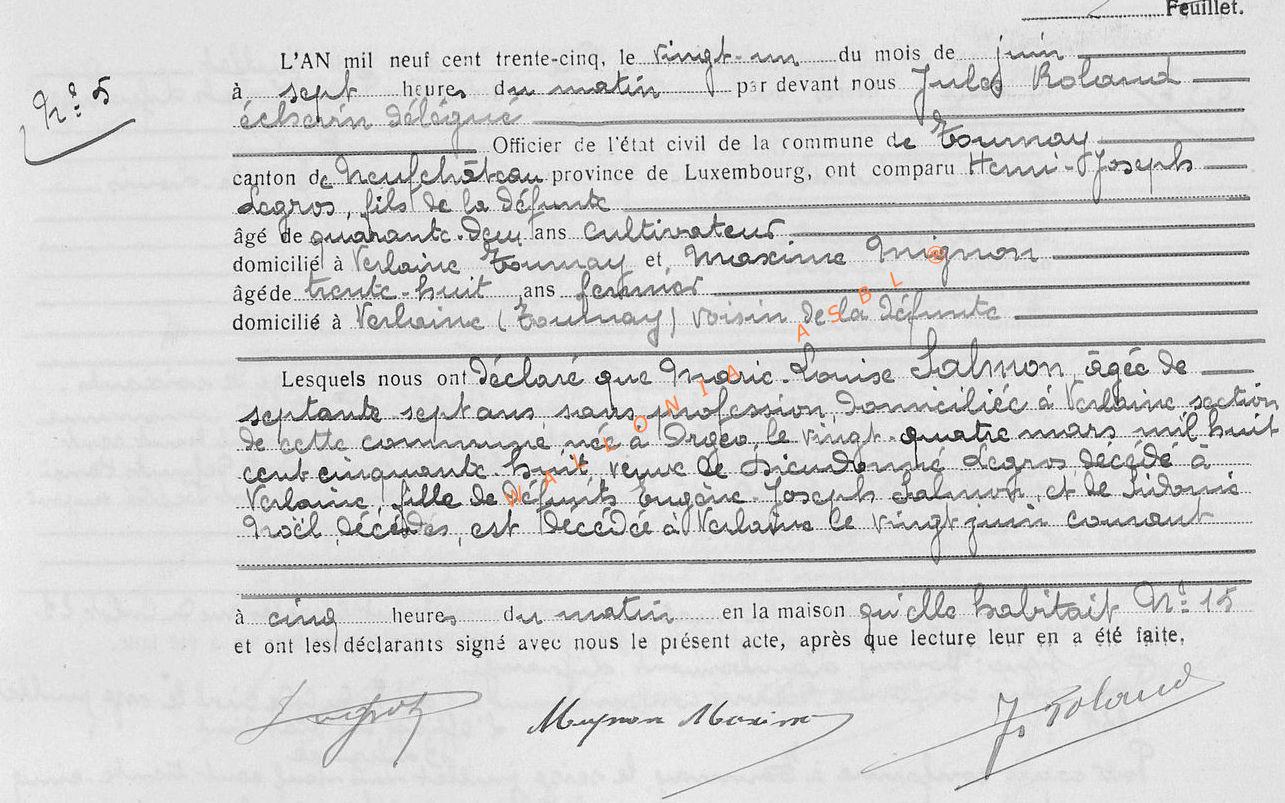 Feuillet.
L'AN mil neuf cent trente-cinq, le vingt-un du mois de juin
N° 5
à sept heures du matin par devant nous Jules Roland
échevin délégué
Officier de l'état civil de la commune de Tournay
canton de Neufchâteau province de Luxembourg, ont comparu Henri-Joseph
Legros, fils de la défunte
âgé de quarante-deux ans cultivateur
domicilié à Verlaine Tournay et, Maxime Mignon
âgé de trente-huit ans fermier
domicilié à Verlaine (Tournay) voisin de la défunte
Lesquels nous ont déclaré que Marie-Louise Salmon, âgée de
septante sept ans sans profession, domiciliée à Verlaine section
de cette commune née à Orgeo, le vingt-quatre mars mil huit
cent cinquante huit veuve de Dieudonné Legros, décédé à
Verlaine, fille de défunts Eugène-Joseph Salmon, et de Sidonie
Noël, décédés, est décédée à Verlaine le vingt juin courant
à cinq heures du matin en la maison qu'elle habitait N° 15
et ont les déclarants signé avec nous le présent acte, après que lecture leur en a été faite.
Mignon Maxime J. Roland
WALLONIA ASBL @